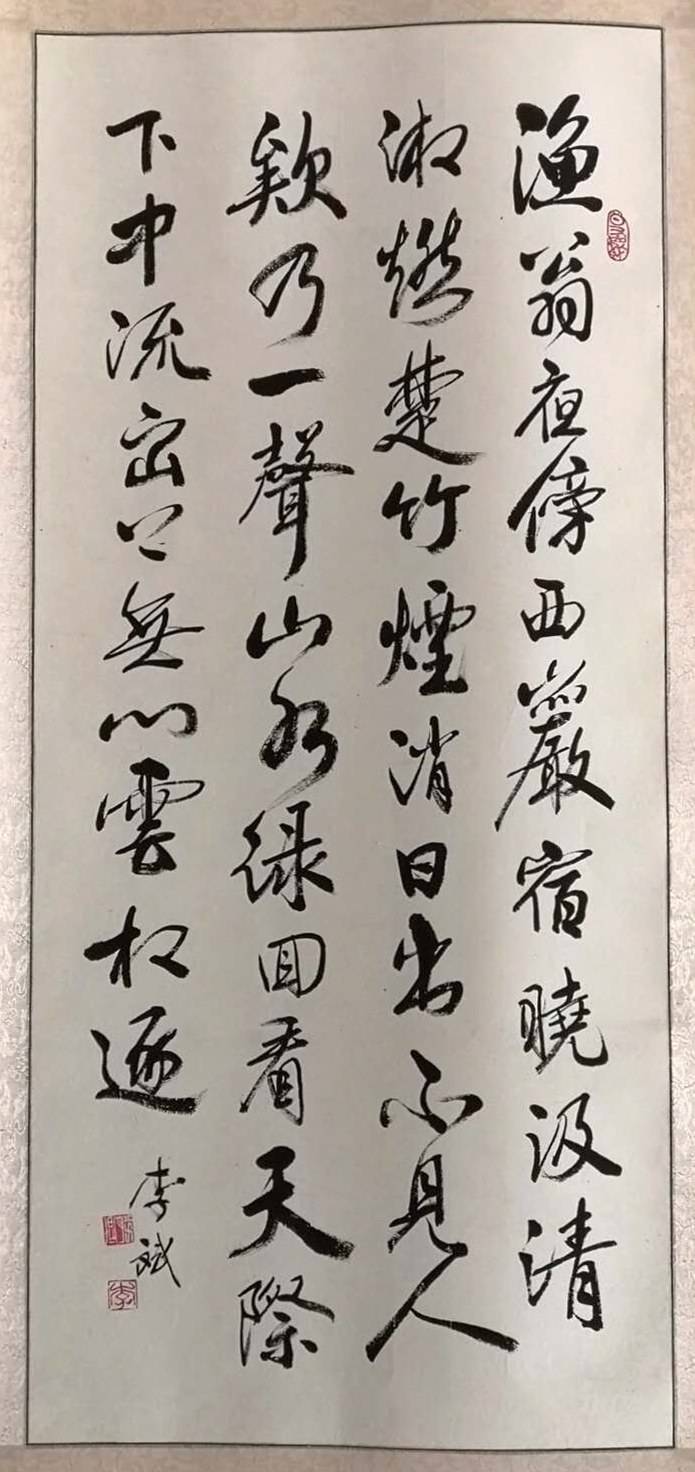 漁翁夜傍西巖宿曉汲清
湘燃楚竹煙消日出不見人
欸乃一聲山水綠回看天際
下中流岩上無心雲相逐
李斌